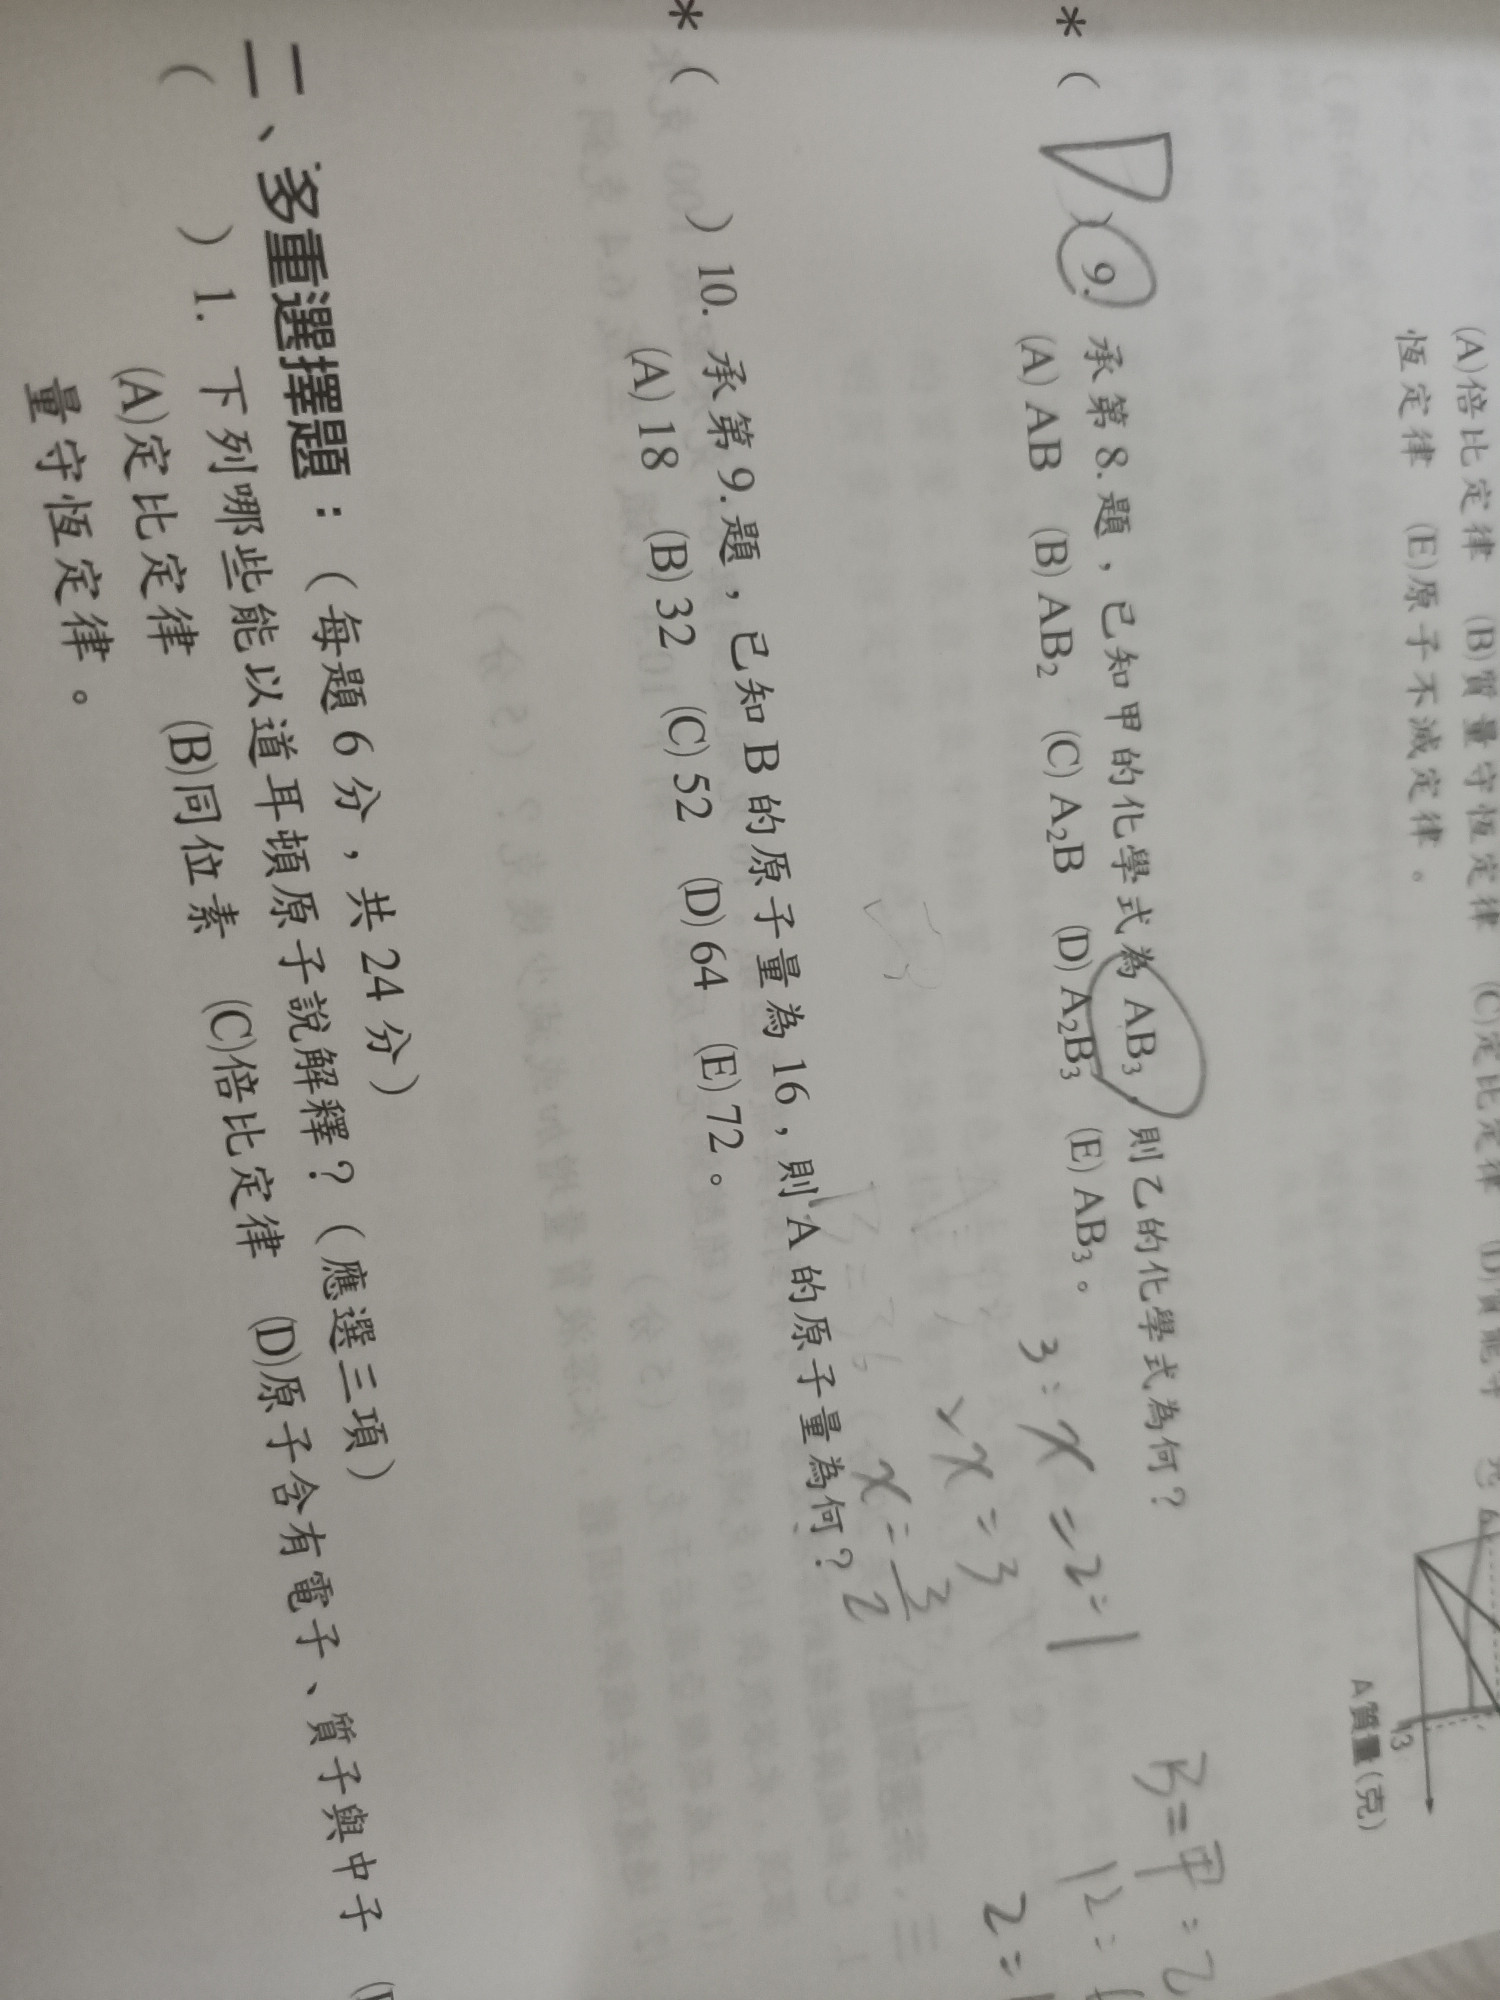 (A)倍比定律 (B)質量守恆定律 (C)定比定律
恆定律 (E)原子不滅定律。
13
A質量(克)
*( D )9. 承第8.題，已知甲的化學式為AB₃，則乙的化學式為何？
(A) AB (B) AB₂ (C) A₂B (D) A₂B₃ (E) AB₃。
B=甲:乙
12:6
2:1
3:x=2:1
2x=3
x=3/2
*( )10. 承第9.題，已知B的原子量為16，則A的原子量為何？
(A) 18 (B) 32 (C) 52 (D) 64 (E) 72。
二、多重選擇題：（每題6分，共24分）
( )1. 下列哪些能以道耳頓原子說解釋？（應選三項）
(A)定比定律 (B)同位素 (C)倍比定律 (D)原子含有電子、質子與中子
量守恆定律。